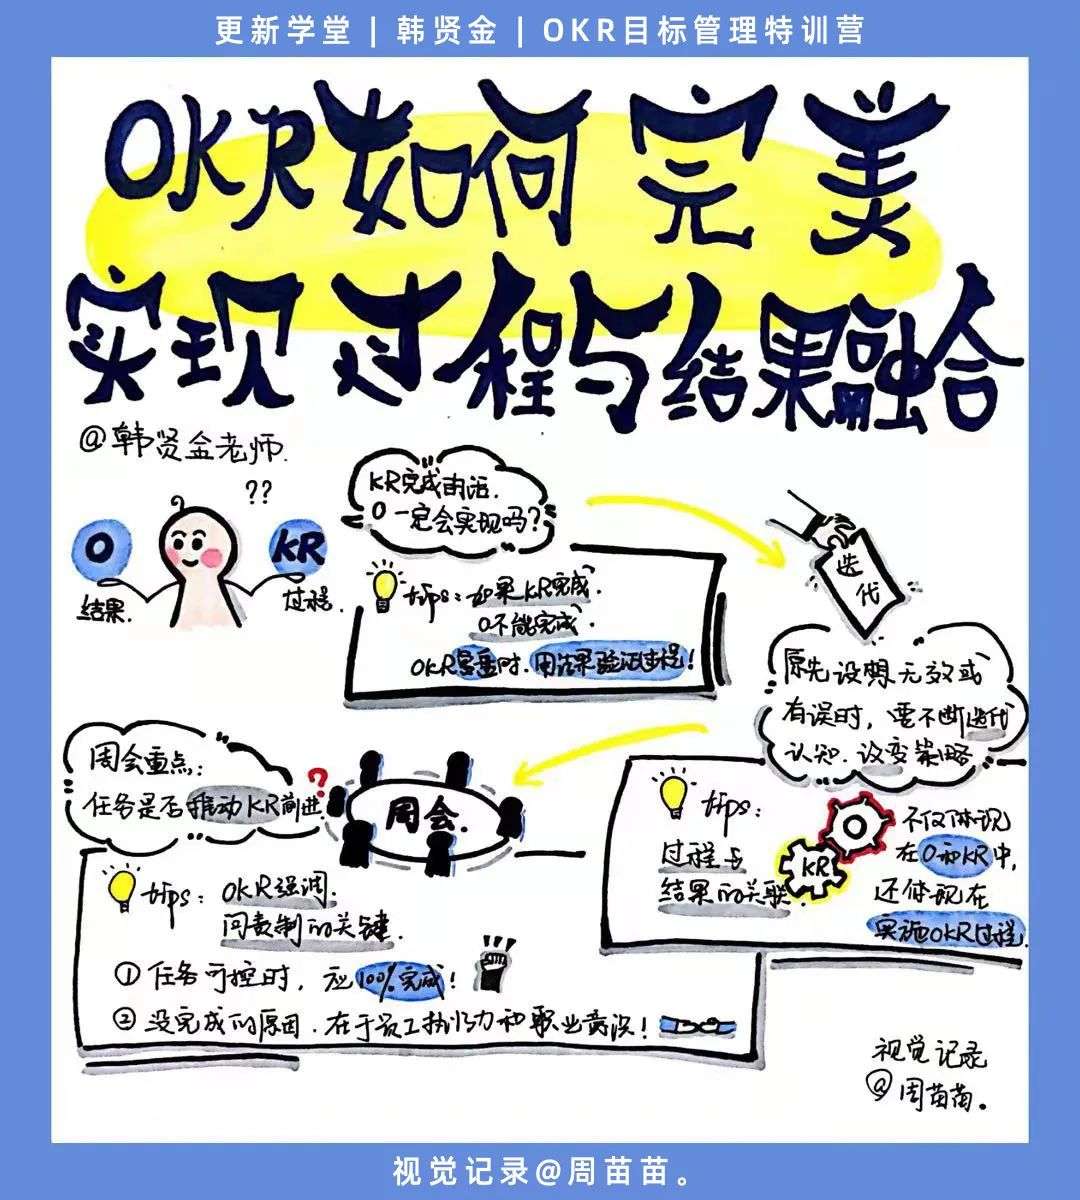 更新学堂 | 韩贤金 | OKR目标管理特训营
OKR如何完美
实现过程与结果融合
@韩贤金老师.
??
O
KR
结果.
过程.
KR完成的话.
O一定会实现吗?
tips: 如果KR完成,
O不能完成,
OKR复盘时,用结果验证过程!
迭代
原先设想无效或
有误时,要不断迭代
认知.改变策略
周会重点:
任务是否推动KR前进
?
周会.
tips:
过程与
结果的关联.
O
KR
不仅体现
在O和KR中,
还体现在
实施OKR过程.
tips: OKR强调
问责制的关键.
① 任务可控时,应100%完成!
② 没完成的原因.在于员工执行力和职业素养!
视觉记录
@周苗苗。
视觉记录@周苗苗。